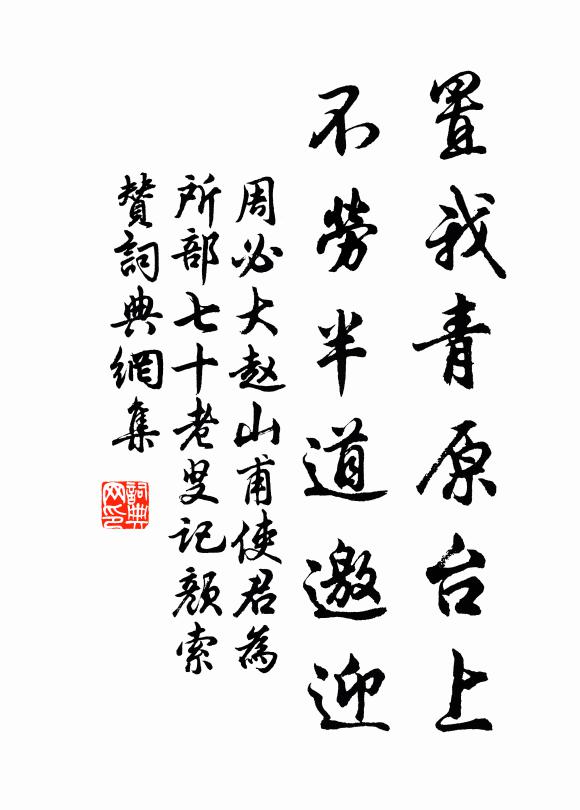 置我青原台上
不勞半道邀迎
周必大赵山甫使君為
所部七十老叟记顏索
贊詞典網集
詞典
网印